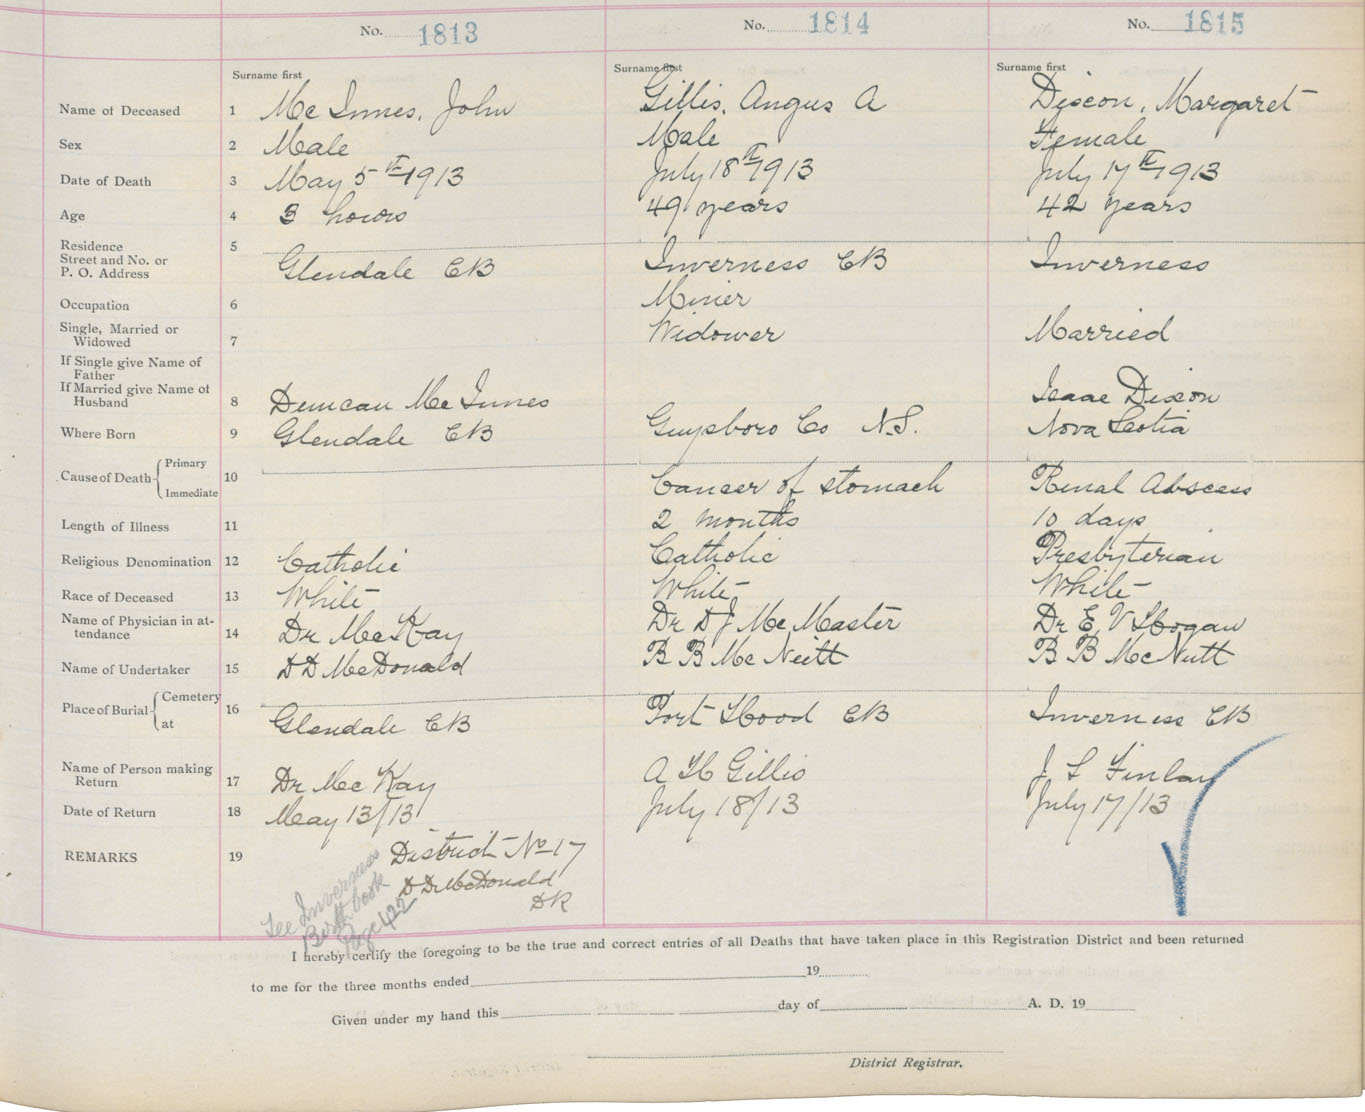 No. 1813 No. 1814 No. 1815
Surname first Surname first Surname first
Name of Deceased 1 Mc Innes, John Gillis, Angus A Dixon, Margaret
Sex 2 Male Male Female
Date of Death 3 May 5th 1913 July 18th 1913 July 17th 1913
Age 4 3 hours 49 years 42 years
Residence
Street and No. or
P. O. Address 5 Glendale CB Inverness CB Inverness
Occupation 6 Miner
Single, Married or
Widowed 7 Widower Married
If Single give Name of
Father
If Married give Name of
Husband 8 Duncan Mc Innes Isaac Dixon
Where Born 9 Glendale CB Guysboro Co N.S. Nova Scotia
Cause of Death Primary
Immediate 10 Cancer of stomach Renal Abscess
Length of Illness 11 2 months 10 days
Religious Denomination 12 Catholic Catholic Presbyterian
Race of Deceased 13 White White White
Name of Physician in at-
tendance 14 Dr McKay Dr D J McMaster Dr E V Hogan
Name of Undertaker 15 D D McDonald B B McNeitt B B McNutt
Place of Burial Cemetery
at 16 Glendale CB Port Hood CB Inverness CB
Name of Person making
Return 17 Dr Mc Kay A H Gillis J L Finlay
Date of Return 18 May 13/13 July 18/13 July 17/13
REMARKS 19 District No 17
D D McDonald
DR
See Inverness
Birth book
Page 422
I hereby certify the foregoing to be the true and correct entries of all Deaths that have taken place in this Registration District and been returned
to me for the three months ended 19
Given under my hand this day of A. D. 19
District Registrar.